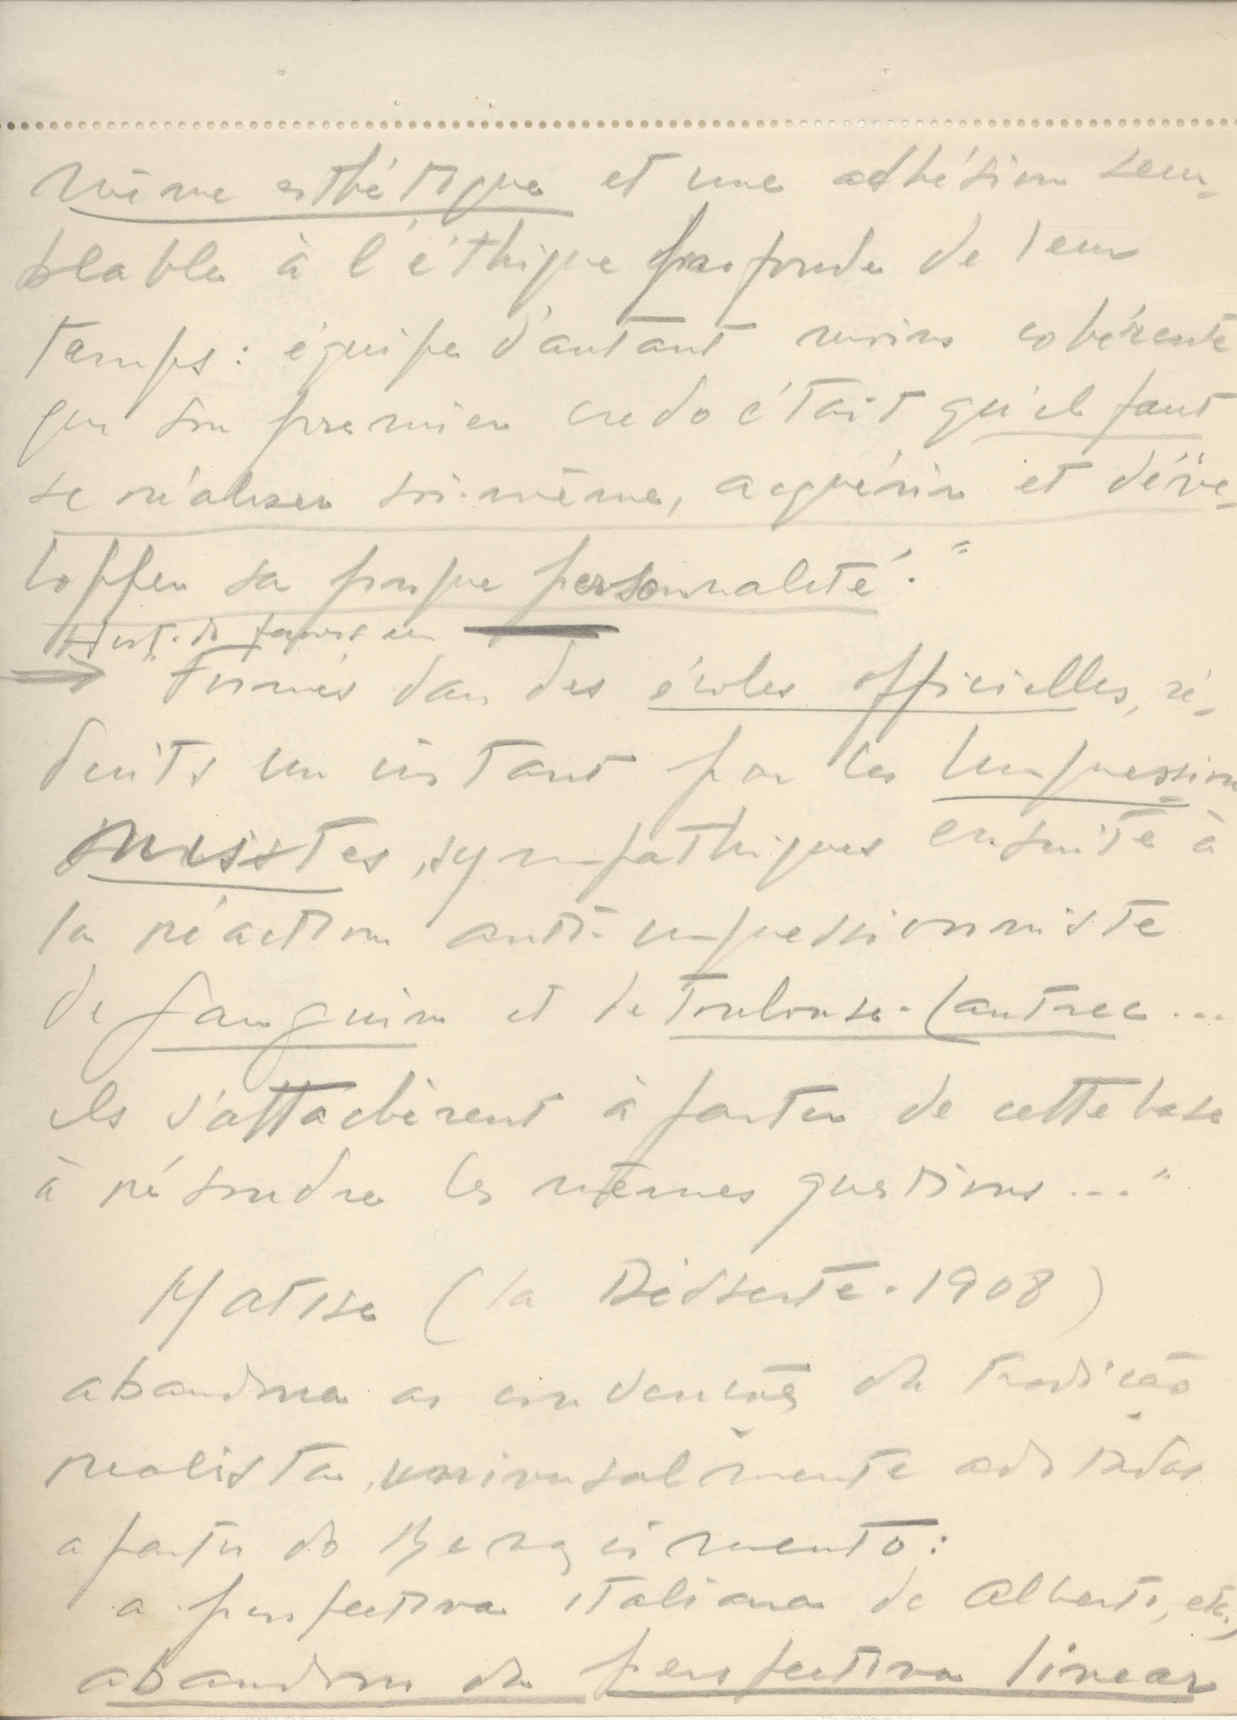 même esthétique et une adhésion sem-
blable à l'éthique profonde de leur
temps: équipe d'autant moins cohérente
que son premier credo était qu'il faut
se réaliser soi-même, acquérir et déve-
lopper sa propre personnalité."
Hist. do
→ Formés dans des écoles officielles, sé-
duits un instant par les Impression
nisstes, sympathiques ensuite à
la réaction anti-impressionniste
de Gauguin et de Toulouse-Lautrec...
ils s'attachèrent à partir de cette base
à résoudre les mêmes questions..."
Matisse (la Désserte-1908)
abandona as convenções da tradição
realista, universalmente adotadas
a partir do Renascimento:
a perspectiva italiana de Alberti, etc.,
abandono da perspectiva linear